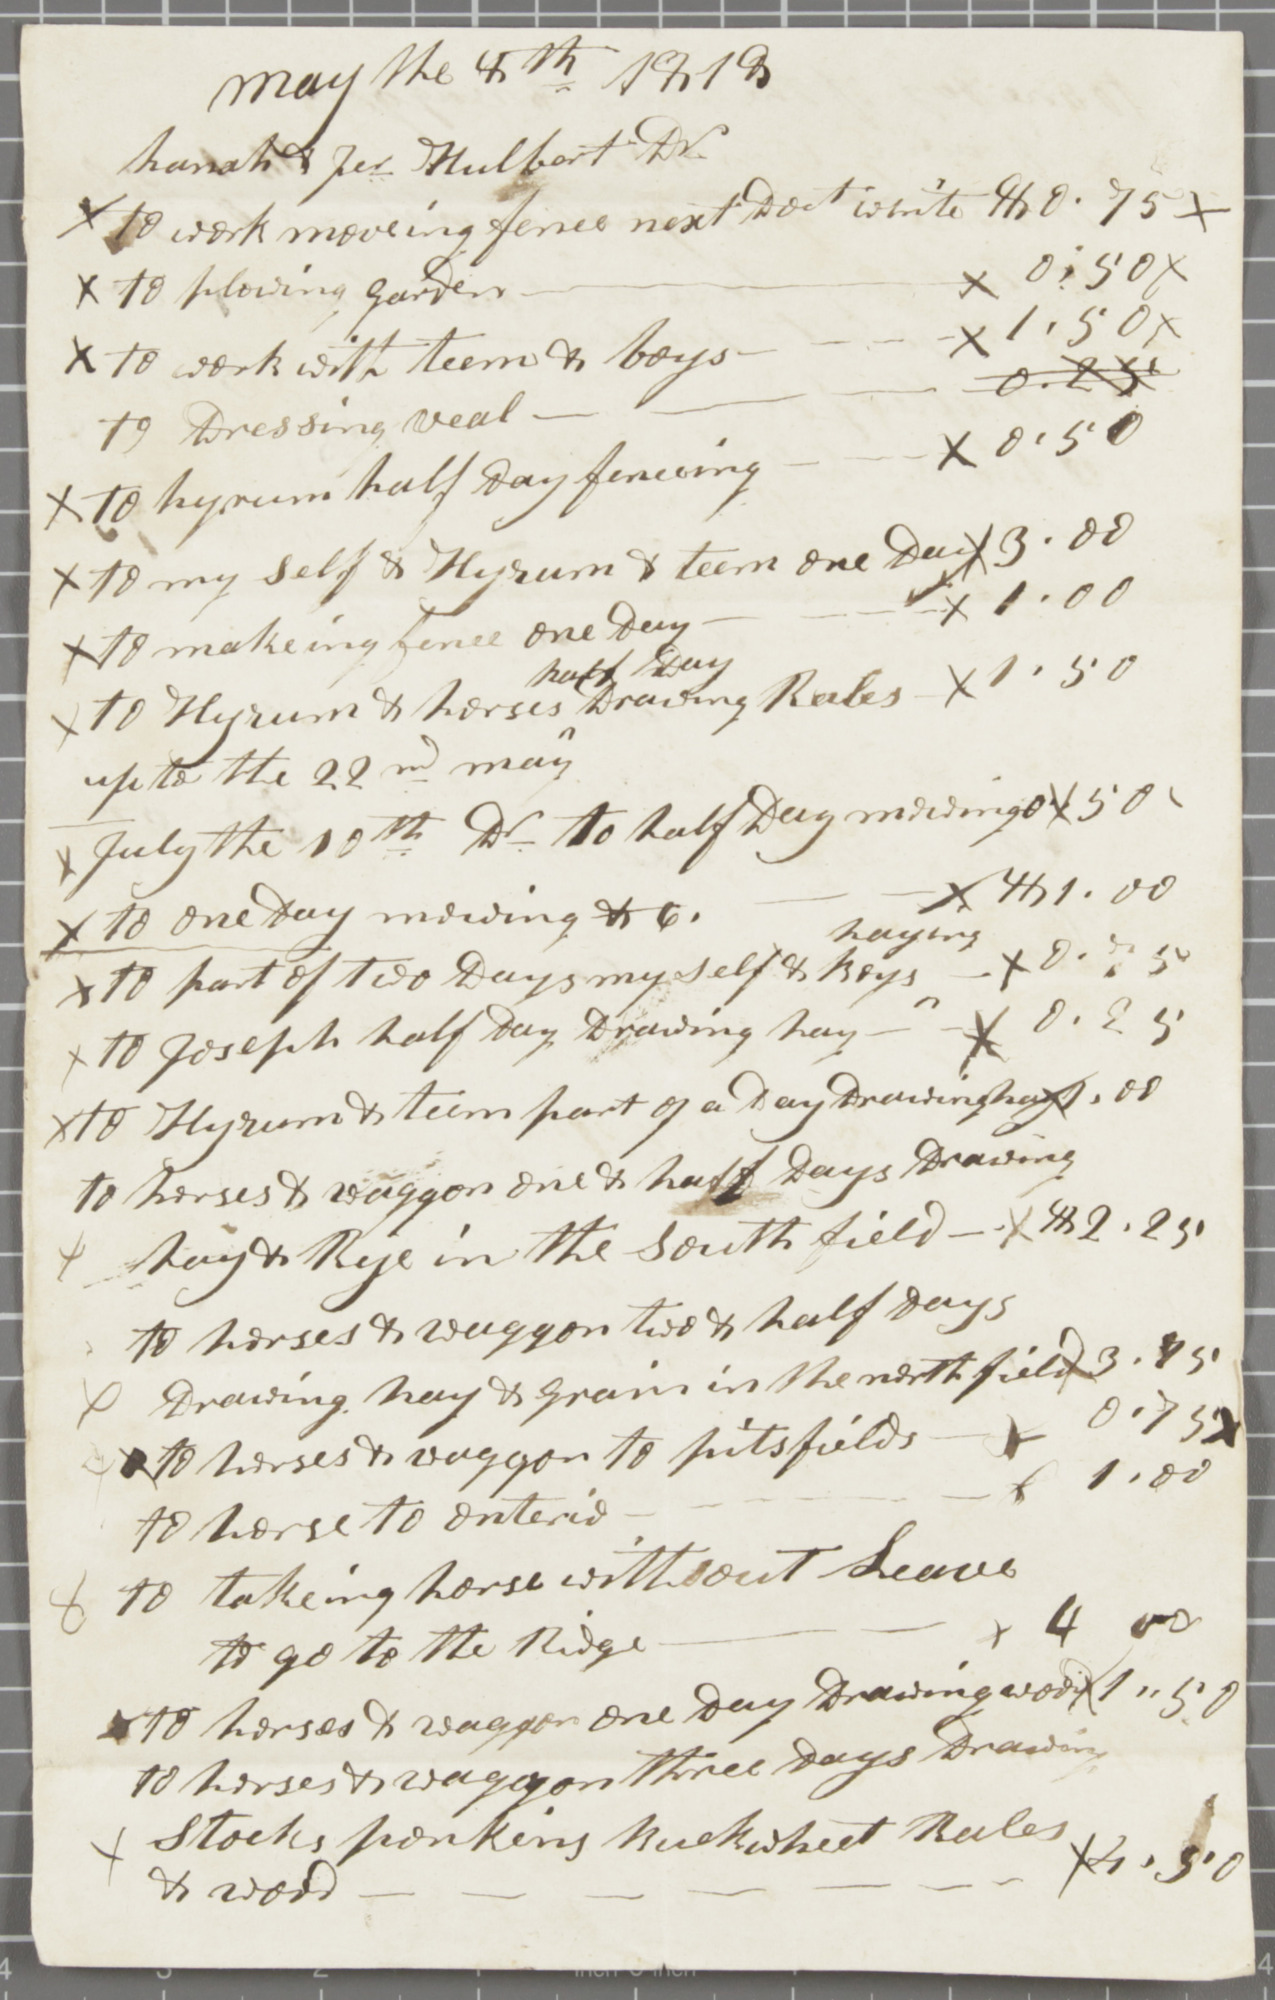 may the 8th 1818
hanah & Jer Hulbort Dr
X to work moveing fence next Doct white $0.75 X
X to plowing garden X 0.50 X
X to work with teem & boys X 1.50 X
to Dressing veal 0.25
X to hyrum half Day fenceing X 0.50
X to my self & Hyrum & teem one Day X 3.00
X to makeing fence one Day X 1.00
half Day
X to Hyrum & horses Drawing Rales X 1.50
up to the 22nd may
X July the 10th Dr to half Day mowing 0 X 50
X to one Day mowing & c. X $1.00
haying
X to part of two Days my self & boys X 0.75
X to Joseph half Day Drawing hay X 0.25
X to Hyrum & teem part of a Day Drawing hay X 1.00
to horses & waggon one & half Days Drawing
X hay & Rye in the South field X $2.25
to horses & waggon two & half days
X Drawing hay & grain in the north field X 3.75
X to horses & waggon to pitsfields X 0.75 X
to horse to onterio X 1.00
X to takeing horse without Leave
to go to the Ridge X 4 00
X to horses & waggon one Day Drawing wood X 1.50
to horses & waggon three Days Drawing
X Stocks ponkins Buckwheet Rales
& wood X 4.50